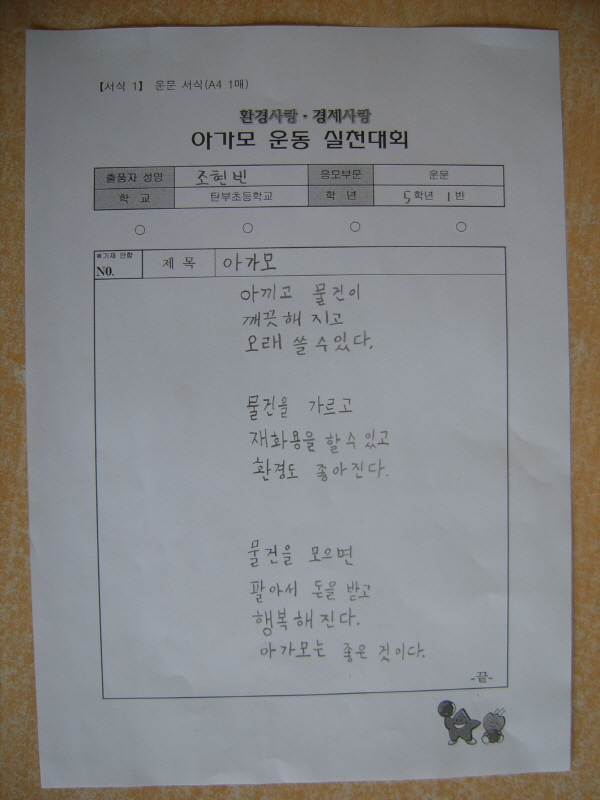 【서식 1】 운문 서식(A4 1매)
환경사랑·경제사랑
아가모 운동 실천대회
출품자 성명 조현빈 응모부문 운문
학 교 탄부초등학교 학 년 5학년 1반
■기재 안함
NO.
제 목 아가모
아끼고 물건이
깨끗해 지고
오래 쓸 수 있다.
물건을 가르고
재화용을 할 수 있고
환경도 좋아진다.
물건을 모으면
팔아서 돈을 받고
행복해 진다.
아가모는 좋은 것이다.
-끝-